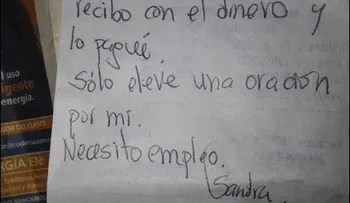 recibo con el dinero y
lo pagué.
Sólo eleve una oración
por mi.
Necesito empleo.
Sandra
l uso
gente
energía.
GÍA EN: